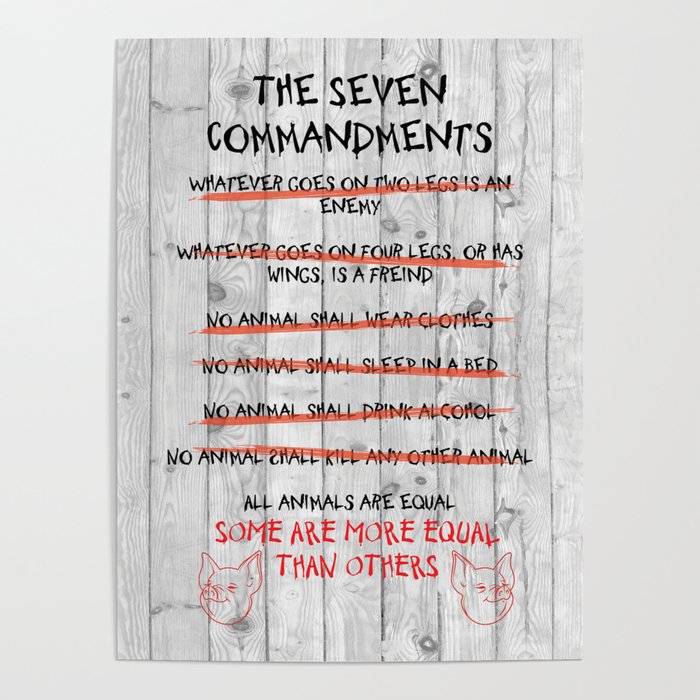 THE SEVEN
COMMANDMENTS
WHATEVER GOES ON TWO LEGS IS AN
ENEMY
WHATEVER GOES ON FOUR LEGS, OR HAS
WINGS, IS A FREIND
NO ANIMAL SHALL WEAR CLOTHES
NO ANIMAL SHALL SLEEP IN A BED
NO ANIMAL SHALL DRINK ALCOHOL
NO ANIMAL SHALL KILL ANY OTHER ANIMAL
ALL ANIMALS ARE EQUAL
SOME ARE MORE EQUAL
THAN OTHERS